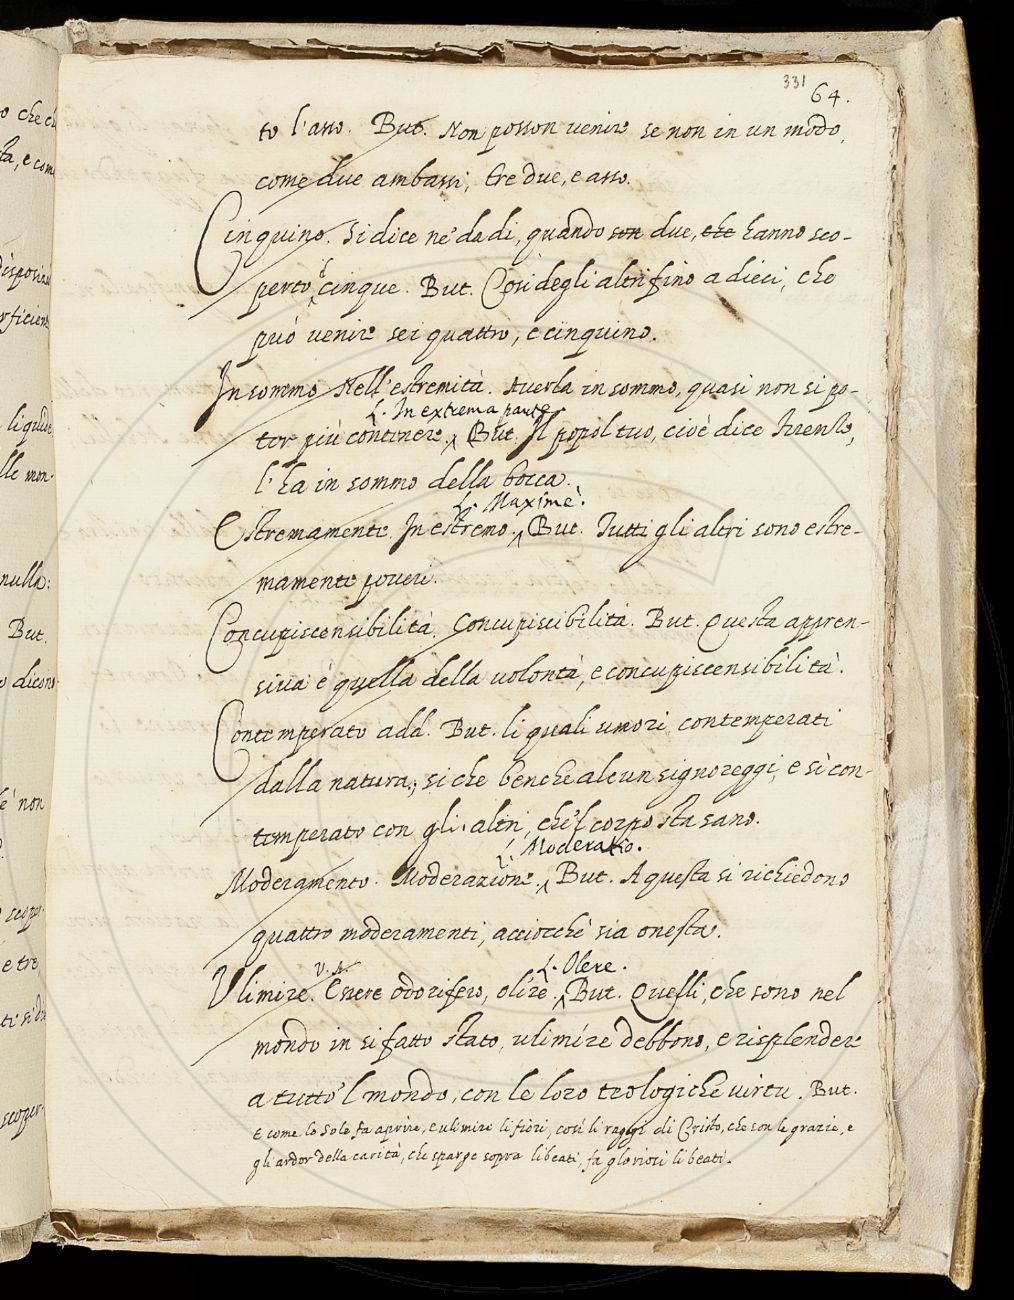 o che ch
ta, e com
disposizi
rficient
liquid
lle mon-
nulla:
But.
o dicono
e non
scoper-
e tre
scoper-
331
64.
to l'asso. But. Non posson venire se non in un modo,
come due ambassi, tre due, e asso.
Cinquino. Si dice ne' dadi, quando son due, che hanno sco-
perto 'l cinque. But. Così degli altri fino a dieci, che
può venire sei quattro, e cinquino.
In sommo Nell'estremità. Averla in sommo, quasi non si po-
L. In extrema parte
ter più continere. But. Il popol tuo, cioè dice Firenze,
l'ha in sommo della bocca.
L. Maxime.
Estremamente. In estremo. But. Tutti gli altri sono estre-
mamente poveri.
Concupiscensibilità. Concupiscibilità. But. Questa appren-
siva è quella della volontà, e concupiscensibilità.
Contemperato add. But. li quali umori contemperati
dalla natura; sì che benchè alcun signoreggi, e sì con-
temperato con gli altri, che 'l corpo sta sano.
L. Moderatio.
Moderamento. Moderazione. But. A questa si richiedono
quattro moderamenti, acciocchè sia onesta.
V. A.
L. Olere.
Ulimire. Essere odorifero, olire. But. Quelli, che sono nel
mondo in sì fatto stato, ulimire debbono, e risplendere
a tutto 'l mondo, con le loro teologiche virtù. But.
E come lo Sole fa aprire, e ulimire li fiori, così li raggi di Cristo, che son le grazie, e
gli ardor della carità, che sparge sopra li beati, fa gloriosi li beati.